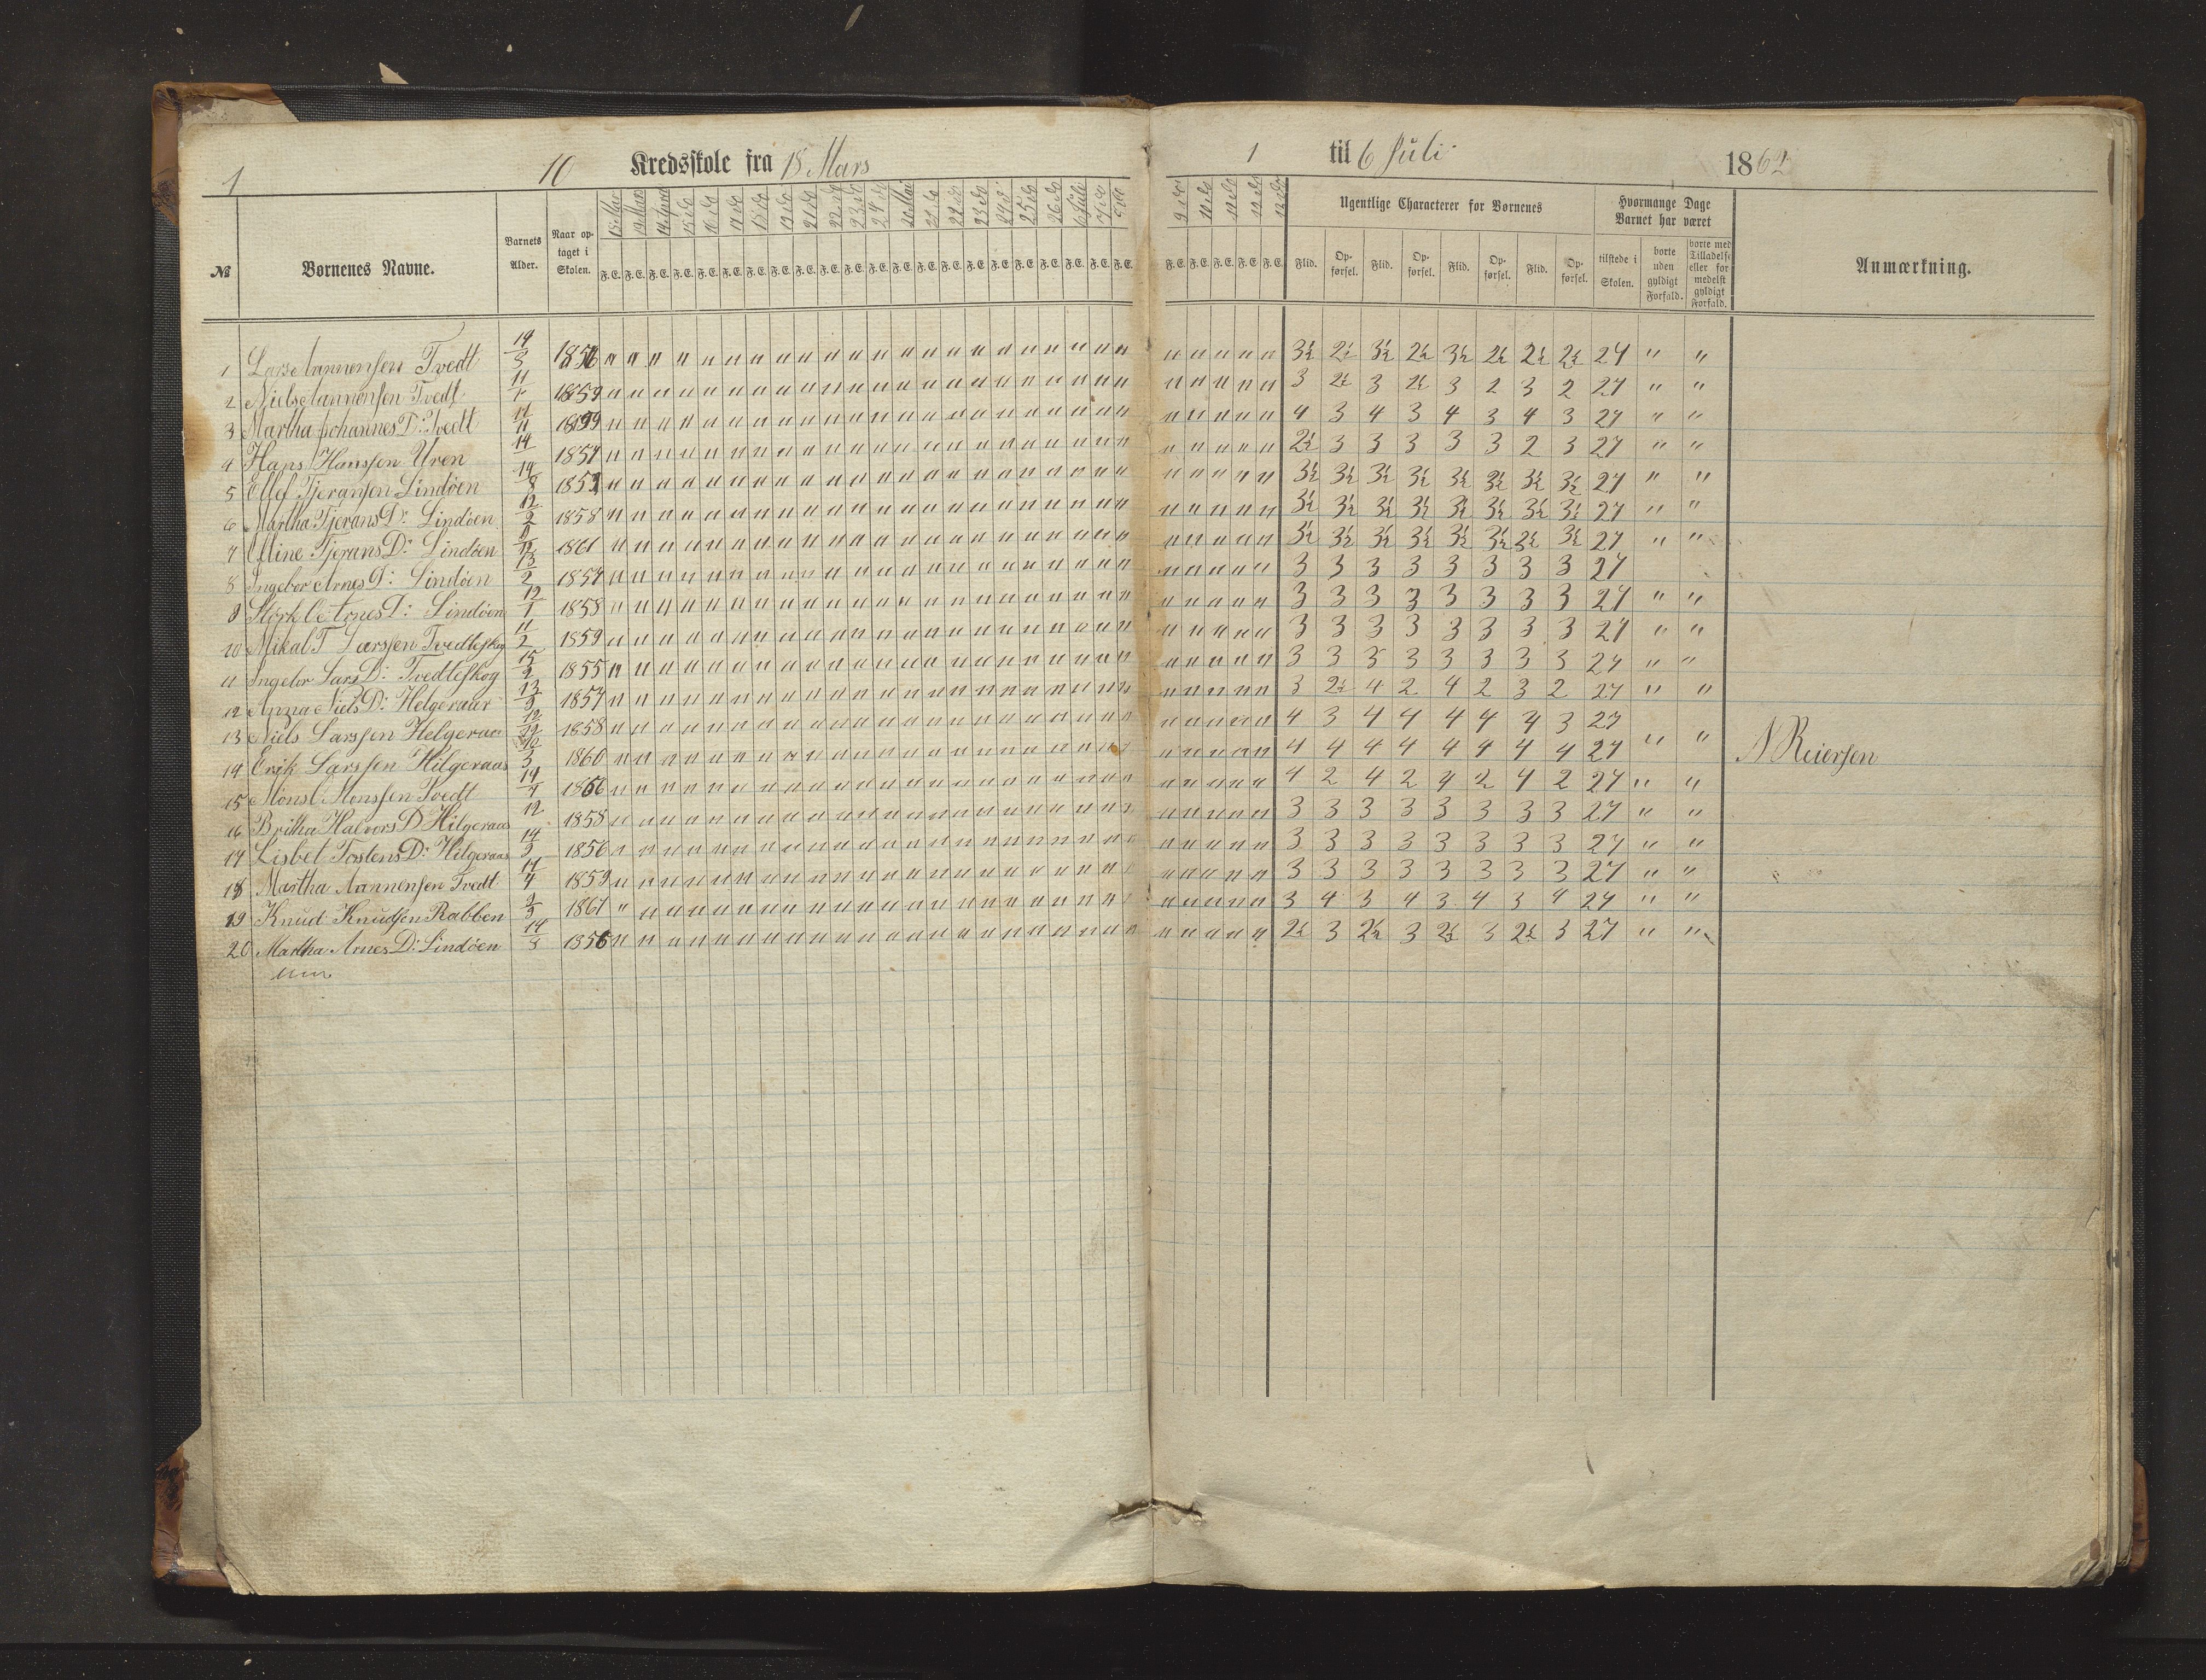 1 10 Kredsskole fra 18 Mars 1 til 6 Juli 1862
№ Børnenes Navne. Barnets Alder. Naar optaget i Skolen. F. E. Ugentlige Characterer for Børnenes Hvormange Dage Barnet har været Anmærkning.
Flid. Opførsel. Flid. Opførsel. Flid. Opførsel. Flid. Opførsel. tilstede i Skolen. borte uden gyldigt Forfald. borte med Tilladelse eller formedelst gyldigt Forfald.
1 Lars Aannensen Tvedt 14/3 1856 3½ 2½ 3½ 2½ 3½ 2½ 2½ 2½ 27 " "
2 Niels Aannensen Tvedt 11 1859 3 2½ 3 2½ 3 2 3 2 27 " "
3 Martha Johannes D: Tvedt 11 1859 4 3 4 3 4 3 4 3 27 " "
4 Hans Hanssen Uren 14 1857 2½ 3 3 3 3 3 2 3 27 " "
5 Ellef Tjeransen Lindöen 14/8 1857 3½ 3½ 3½ 3½ 3½ 3½ 3½ 3½ 27 " "
6 Martha Tjerans D: Lindöen 12/2 1858 3½ 3½ 3½ 3½ 3½ 3½ 3½ 3½ 27 " "
7 Elline Tjerans D: Lindöen 1861 3½ 3½ 3½ 3½ 3½ 3½ 2½ 3½ 27 " "
8 Ingebor Arnes D: Lindöen 13/2 1857 3 3 3 3 3 3 3 3 27
9 Störkle Arnes D: Lindöen 12/1 1858 3 3 3 3 3 3 3 3 27 " "
10 Mikal T Larssen Tvedteskog 11/2 1859 3 3 3 3 3 3 3 3 27 " "
11 Ingebor Lars D: Tvedteskog 15/2 1855 3 3 3 3 3 3 3 3 27 " "
12 Anna Niels D: Helgeraas 13/3 1857 3 2½ 4 2 4 2 3 2 27 " "
13 Niels Larssen Helgeraas 12 1858 4 3 4 4 4 4 4 3 27
14 Erik Larssen Hilgeraas 10/3 1860 4 4 4 4 4 4 4 4 27 " " N Reiersen
15 Mons Monssen Tvedt 14/4 1856 4 2 4 2 4 2 4 2 27 " "
16 Britha Halvors D Hilgeraas 12 1858 3 3 3 3 3 3 3 3 27 " "
17 Lisbet Tostens D: Hilgeraas 14/3 1856 3 3 3 3 3 3 3 3 27 " "
18 Martha Aannensen Tvedt 11/4 1859 3 3 3 3 3 3 3 3 27 " "
19 Knud Knudsen Rabben 9/3 1861 3 4 3 4 3 4 3 4 27 " "
20 Martha Arnes D: Lindöen 14/3 1856 2½ 3 2½ 3 2½ 3 2½ 3 27 " "